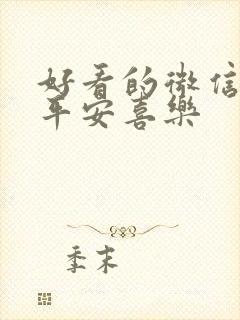 好看的微信
平安喜樂
季末